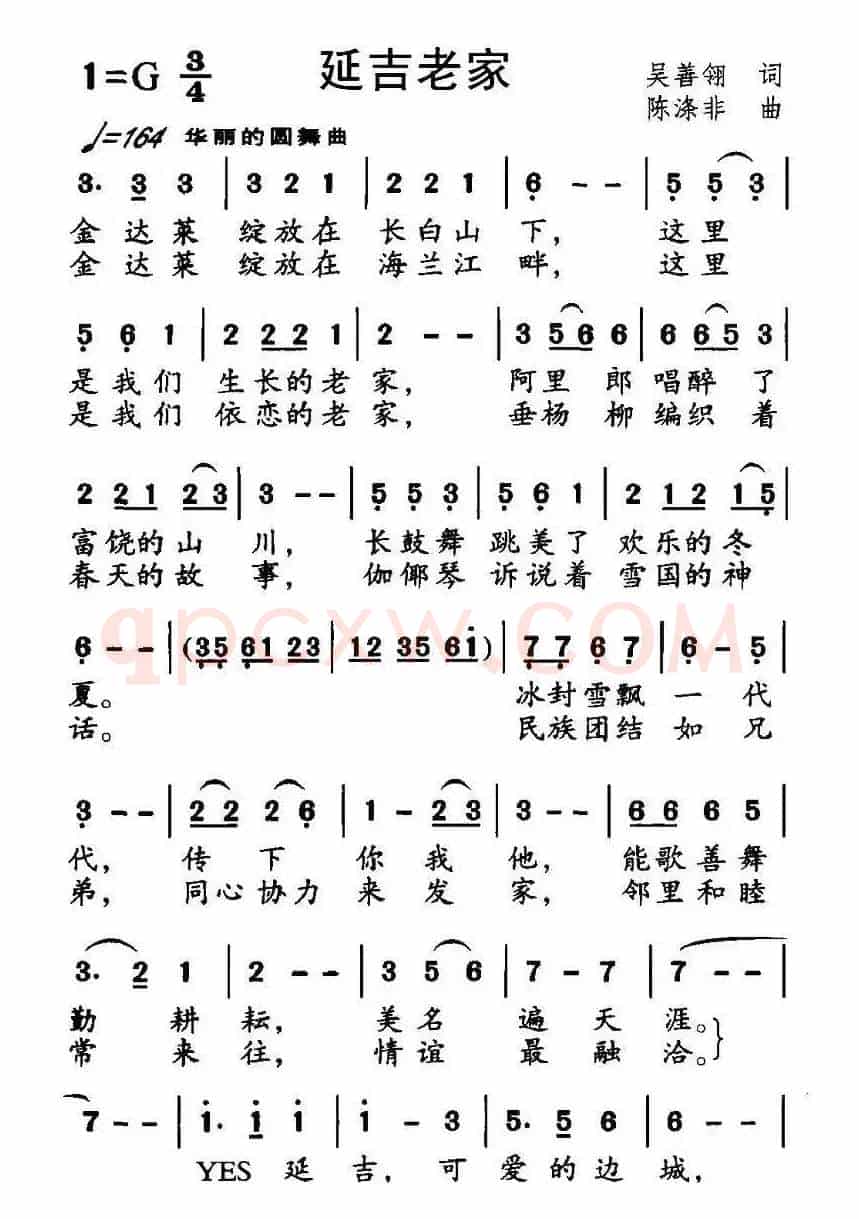 1=G 3/4 延吉老家 吴善翎 词
陈涤非 曲
♩=164 华丽的圆舞曲
3. 3 3 | 3 2 1 | 2 2 1 | 6 - - | 5 5 3 |
金达莱 绽放在 长白山 下, 这里
金达莱 绽放在 海兰江 畔, 这里
5 6 1 | 2 2 2 1 | 2 - - | 3 5 6 6 | 6 6 5 3 |
是我们 生长的老 家, 阿里 郎 唱醉 了
是我们 依恋的老 家, 垂杨 柳 编织 着
2 2 1 2 3 | 3 - - | 5 5 3 | 5 6 1 | 2 1 2 1 5 |
富饶的山 川, 长鼓舞 跳美了 欢乐的冬
春天的故 事, 伽倻琴 诉说着 雪国的神
6 - - | (3 5 6 1 2 3 | 1 2 3 5 6 i) | 7 7 6 7 | 6 - 5 |
夏。 冰封雪飘 一 代
话。 民族团结 如 兄
3 - - | 2 2 2 6 | 1 - 2 3 | 3 - - | 6 6 6 5 |
代, 传 下 你 我 他, 能歌善舞
弟, 同心协力 来 发 家, 邻里和睦
3. 2 1 | 2 - - | 3 5 6 | 7 - 7 | 7 - - |
勤 耕 耘, 美名 遍 天 涯。
常 来 往, 情谊 最 融 洽。
7 - - | i. i i | i - 3 | 5. 5 6 | 6 - - |
YES 延 吉, 可 爱的边 城,
qpcxw.COM